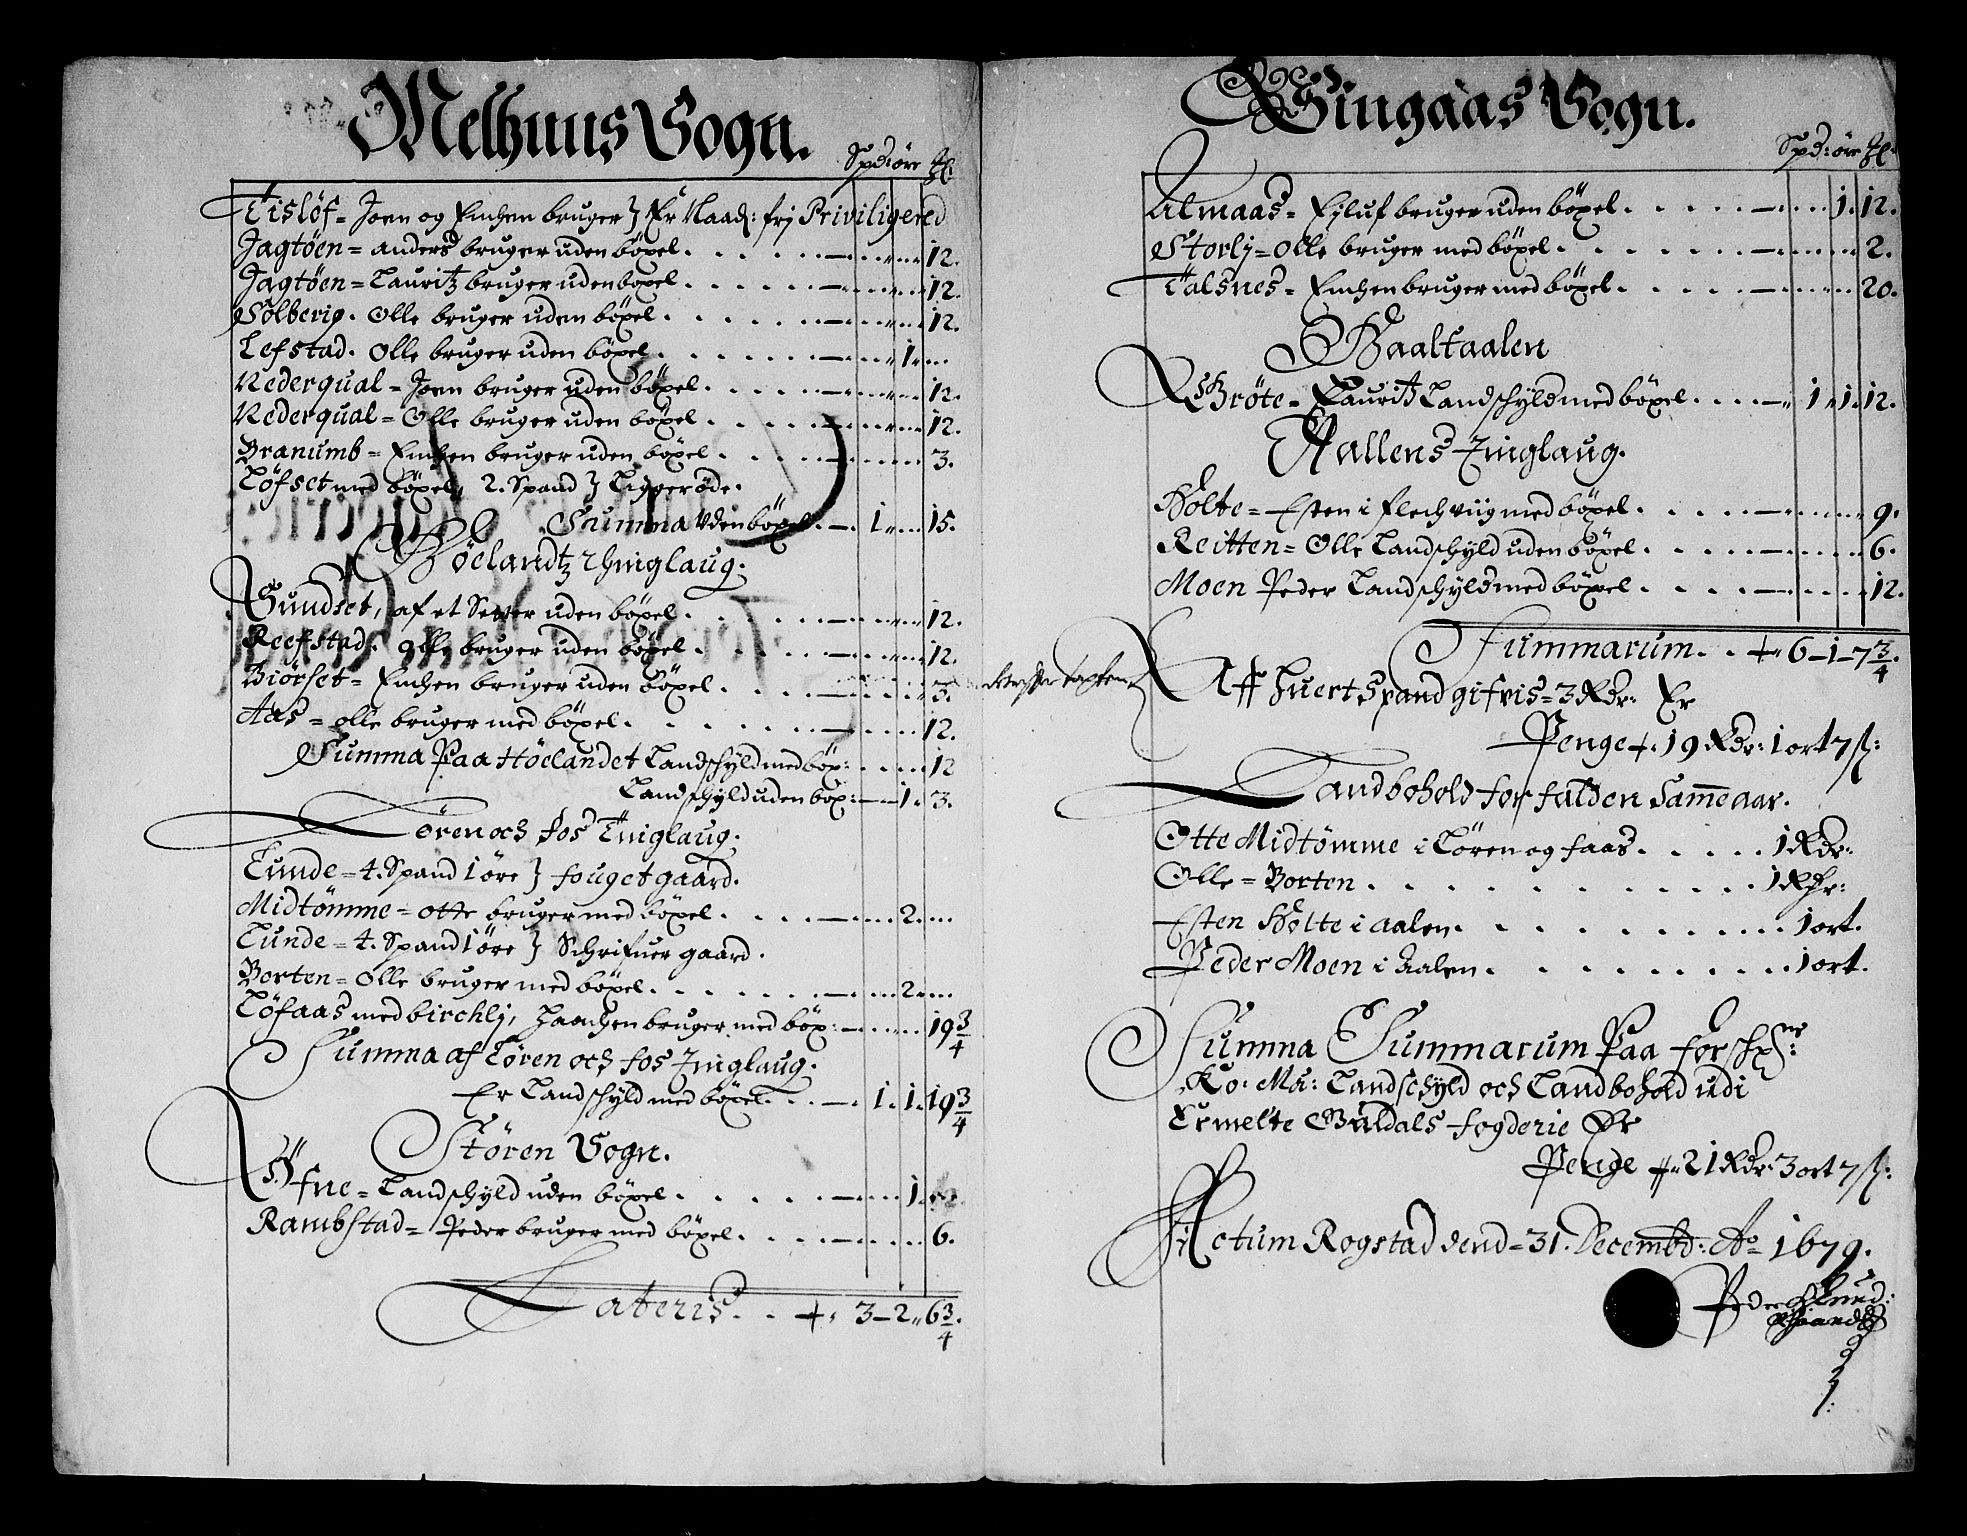 Melhuus Sogn.
Spd: öre ℔
Tislöf = Joen og Enchen bruger } Er Naad: frj Priviligered
Jagtöen = anders bruger uden böxel . . . 12.
Jagtöen = Lauritz bruger uden böxel . . . 12.
Solberig. Olle bruger uden böxel . . . 12.
Lefstad. Olle bruger uden böxel . . . 1 . . .
Nederqual = Joen bruger uden böxel . . . 12.
Nederqual = Olle bruger uden böxel . . . 12.
Branumb = Enchen bruger uden böxel . . . 3.
Löfset med böxel, 2. Spand } Ligger öde.
Summa uden böxel . — . 1 . . . 15.
Höelandtz Thinglaug.
Sundset, af et Sever uden böxel . . . 12.
Reefstad. Olle bruger uden böxel . . . 12.
Biörset = Enchen bruger uden böxel . . . 3.
Aas = olle bruger med böxel . . . 12.
Summa Paa Höelandet Landschyld med böx: . . . 12
Landschyld uden böx: — 1. 3.
Lören och fos Tinglaug.
Lunde = 4. Spand 1 öre } fouget gaard.
Midtömme = otte bruger med böxel . . . 2. . .
Lunde = 4. Spand 1 öre } Schrifuer gaard.
Borten = Olle bruger med böxel . . . 2. . .
Löfaas med birchlj, Haachen bruger med böx: — . . . 19 3/4
Summa af Lören och fos Tinglaug.
Er Landschyld med böxel . . . — . 1. 1. 19 3/4
Stören Sogn.
Ofne = Landschyld uden böxel . . . 1.
Rambstad = Peder bruger med böxel . . . 6.
Lateris . . . 3 — 2 „ 6 3/4.
Singaas Sogn.
Spd: öre ℔:
Almaas = Ejluf bruger uden böxel . . . 1. 12.
Storlj = Olle bruger med böxel . . . 2.
Talsnes = Enchen bruger med böxel . . . 20.
Haaltaalen
Gröte = Lauritz Landschyld med böxel . . . — „ 1 „ 1. 12.
Aallens Tinglaug.
Holte = Esten i flechviig med böxel . . . 9.
Reitten = Olle Landschyld uden böxel . . . 6.
Moen Peder Landschyld med böxel . . . 12.
Summarum . . 6 — 1 — 7 3/4.
efter taxten
Aff huert Spand gifvis = 3 Rdr: Er
Penge 19 Rdr: 1 ort 7 ß:
Landbohold forfalden Samme aar.
Otte Midtömme i Lören og faas . . . 1 Rdr:
Olle = Borten . . . 1 Rdr:
Esten Holte i aalen . . . 1 ort.
Peder Moen i Aalen . . . 1 ort.
Summa Summarum Paa forschr:ne
Ko: Ma: Landschyld och Landbohold udi
Ermelte Guldals fogderie Er
Penge 21 Rdr: 3 ort 7 ß:
Actum Rogstad dend = 31. Decembr: Ao 1679.
Peder